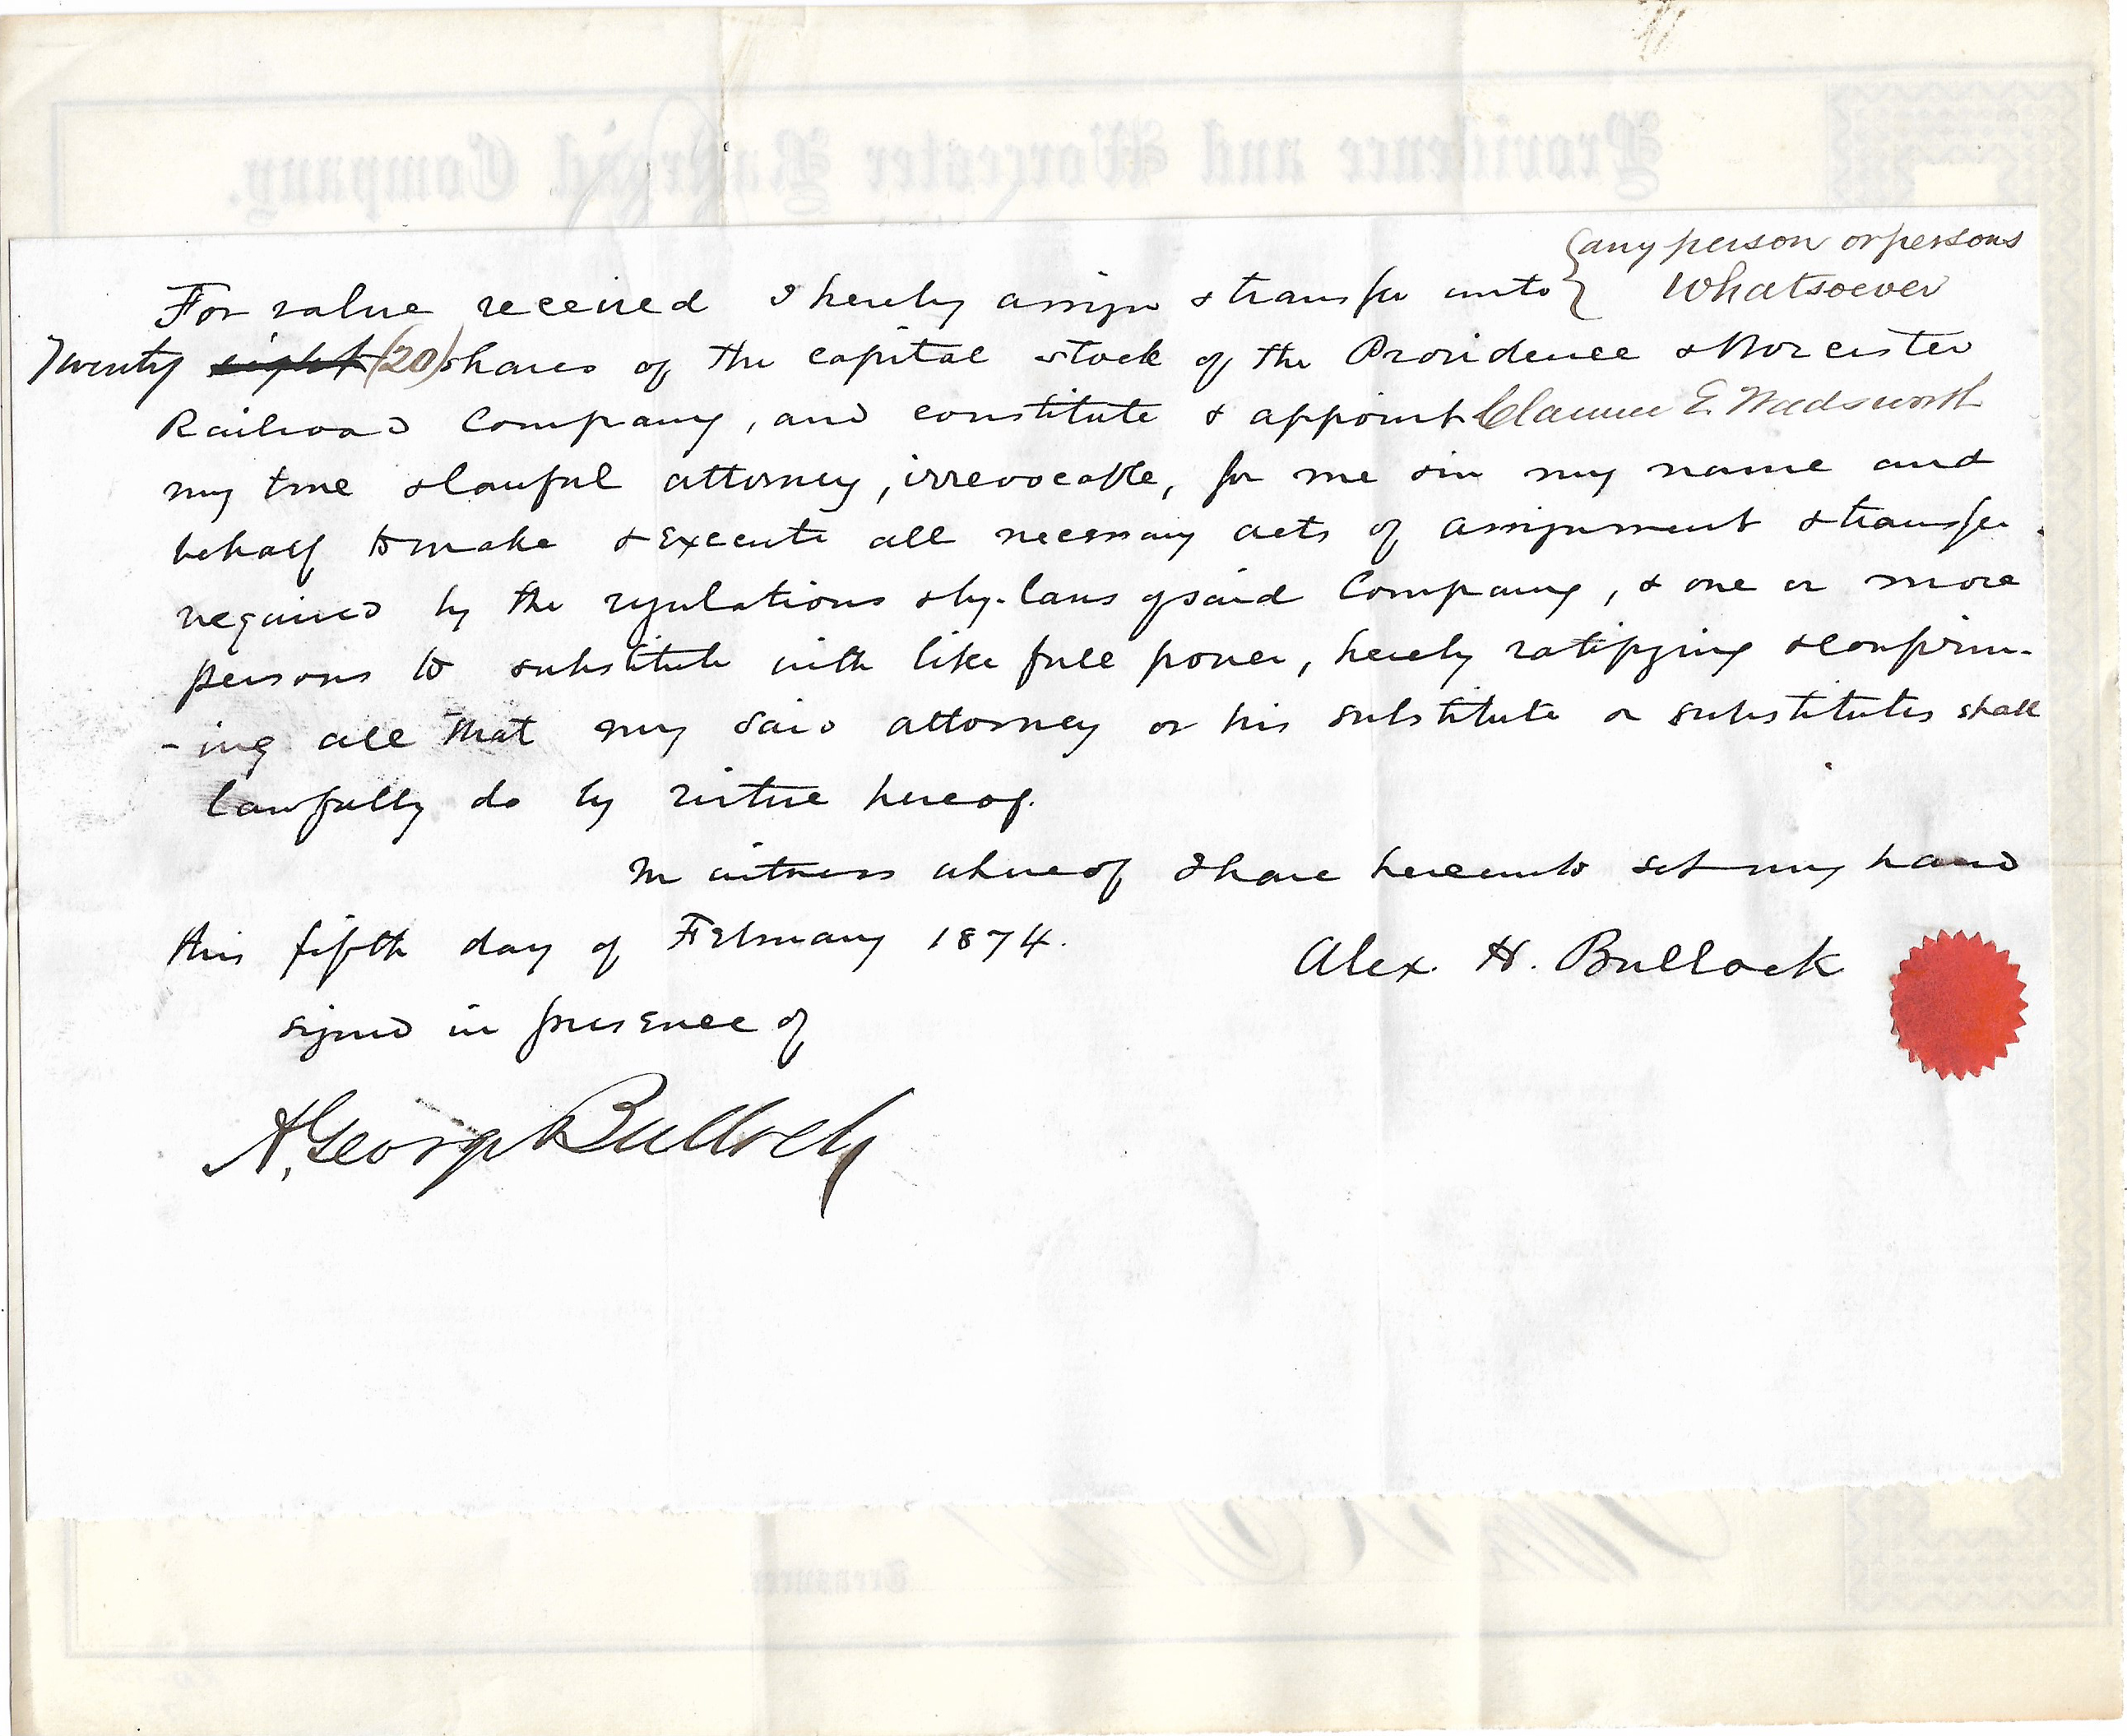 Providence and Worcester Railroad Company.
any person or persons
For value received I hereby assign & transfer unto whatsoever
Twenty eight (20) shares of the capital stock of the Providence & Worcester
Railroad Company, and constitute & appoint Clarence E. Wadsworth
my true & lawful attorney, irrevocable, for me & in my name and
behalf to make & execute all necessary acts of assignment & transfer
required by the regulations & by-laws of said Company, & one or more
persons to substitute with like full power, hereby ratifying & confirm-
-ing all that my said attorney or his substitute or substitutes shall
lawfully do by virtue hereof.
In witness whereof I have hereunto set my hand
this fifth day of February 1874.
Alex. H. Bullock
signed in presence of
A. George Bullock
Treasurer